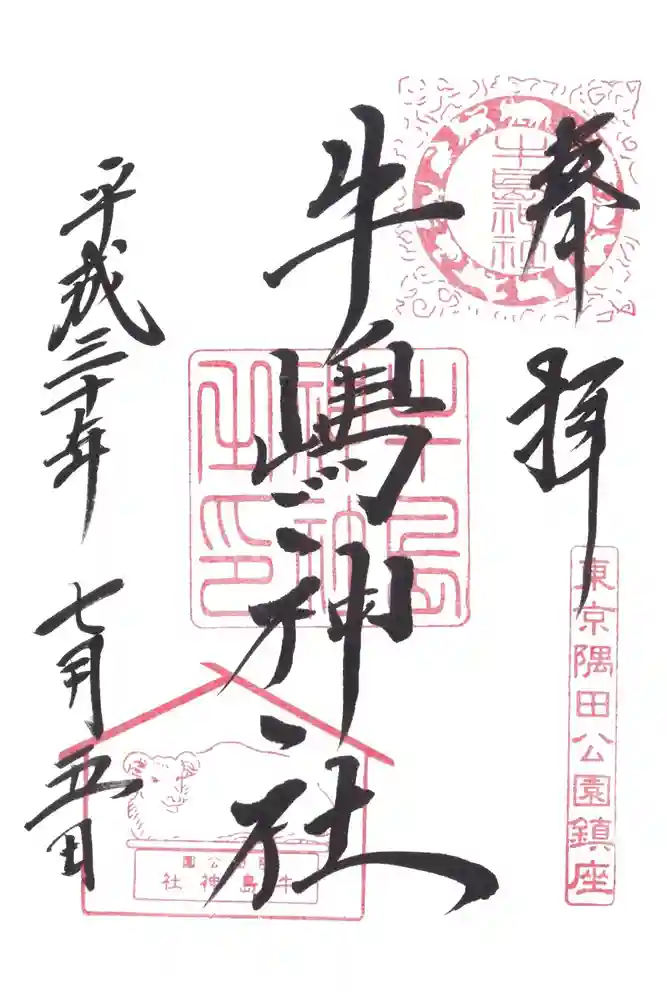 奉拝
牛島神社
東京隅田公園鎮座
牛嶋神社
牛島神社之印
隅田公園
牛島神社
平成三十年
七月五日